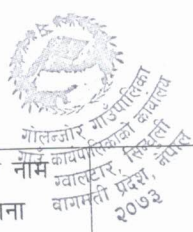 गोलन्जोर गाउँपालिका
गाउँ कार्यपालिकाको कार्यालय
ग्वालटार, सिन्धुली
बागमती प्रदेश, नेपाल
२०७३
नाम